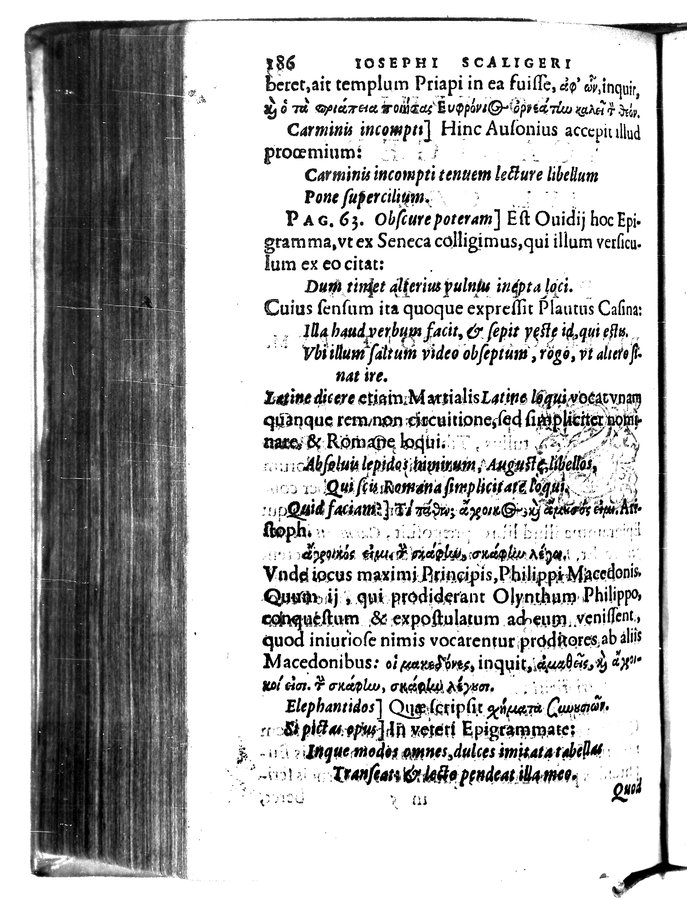 186 IOSEPHI SCALIGERI
beret, ait templum Priapi in ea fuiſſe, ἀφ' ὧν, inquit,
καὶ ὁ τὰ πριάπεια ποιήσας Ευφρόνιος ὀρνεάτην καλεῖ τὸν θεόν.
Carminis incompti] Hinc Auſonius accepit illud
prooemium:
Carminis incompti tenuem lecture libellum
Pone ſupercilium.
PAG. 63. Obſcure poteram] Eſt Ouidij hoc Epi-
gramma, vt ex Seneca colligimus, qui illum verſicu-
lum ex eo citat:
Dum timet alterius vulnus inepta loci.
Cuius ſenſum ita quoque expreſſit Plautus Caſina:
Illa haud verbum facit, & ſepit veſte id, qui eſtu.
Vbi illum ſaltum video obſeptum, rogo, vt altero ſi-
nat ire.
Latine dicere etiam Martialis Latine loqui vocat vnam
quanque rem non circuitione, ſed ſimpliciter nomi-
nare, & Romane loqui.
Abſoluis lepidos nimirum, Auguſte, libellos,
Qui ſcis Romana ſimplicitate loqui.
Quid faciam?] Τί πάθω; ἄγροικος καὶ ἄμουσός εἰμι. Ari-
ſtoph.
ἄγροικός εἰμι τὴν σκάφην, σκάφην λέγω.
Vnde iocus maximi Principis, Philippi Macedonis.
Quum ij, qui prodiderant Olynthum Philippo,
conqueſtum & expoſtulatum ad eum veniſſent,
quod iniurioſe nimis vocarentur proditores ab aliis
Macedonibus: οἱ μακεδόνες, inquit, ἀμαθεῖς, καὶ ἄγροι-
κοί εἰσι. τὴν σκάφην, σκάφην λέγουσι.
Elephantidos] Quæ ſcripſit χήματα συνουσιῶν.
Si pictas opus] In veteri Epigrammate:
Inque modos omnes, dulces imitata tabellas
Tranſeat: & lecto pendeat illa meo.
Quod